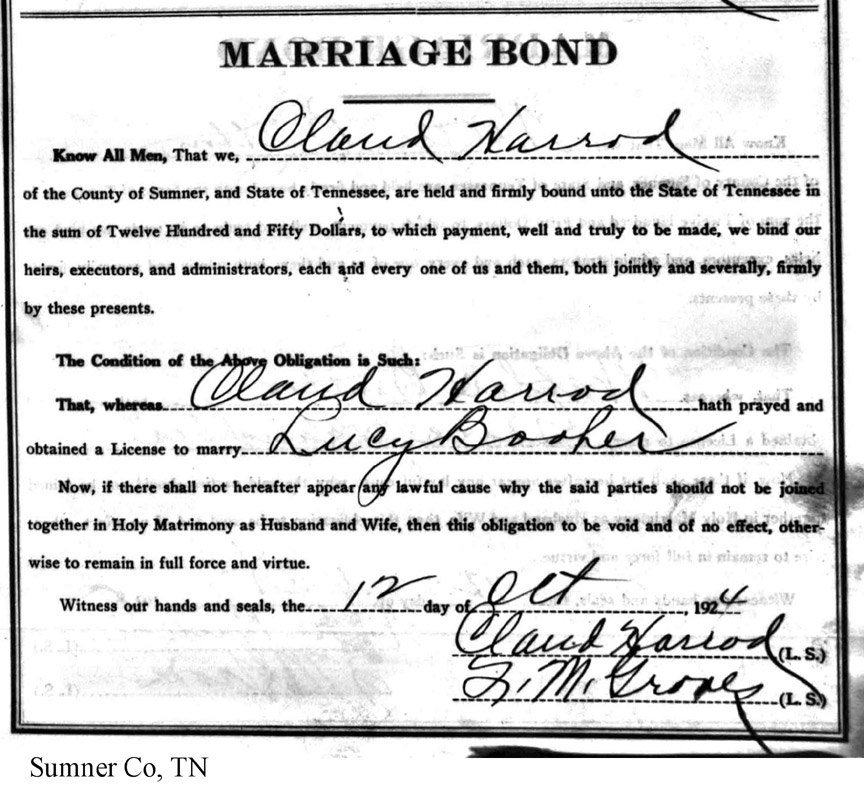 MARRIAGE BOND
Know All Men, That we, Claud Harrod
of the County of Sumner, and State of Tennessee, are held and firmly bound unto the State of Tennessee in
the sum of Twelve Hundred and Fifty Dollars, to which payment, well and truly to be made, we bind our
heirs, executors, and administrators, each and every one of us and them, both jointly and severally, firmly
by these presents.
The Condition of the Above Obligation is Such:
That, whereas Claud Harrod hath prayed and
obtained a License to marry Lucy Booher
Now, if there shall not hereafter appear any lawful cause why the said parties should not be joined
together in Holy Matrimony as Husband and Wife, then this obligation to be void and of no effect, other-
wise to remain in full force and virtue.
Witness our hands and seals, the 12 day of Oct, 1924
Claud Harrod (L. S.)
M. Groves (L. S.)
Sumner Co, TN